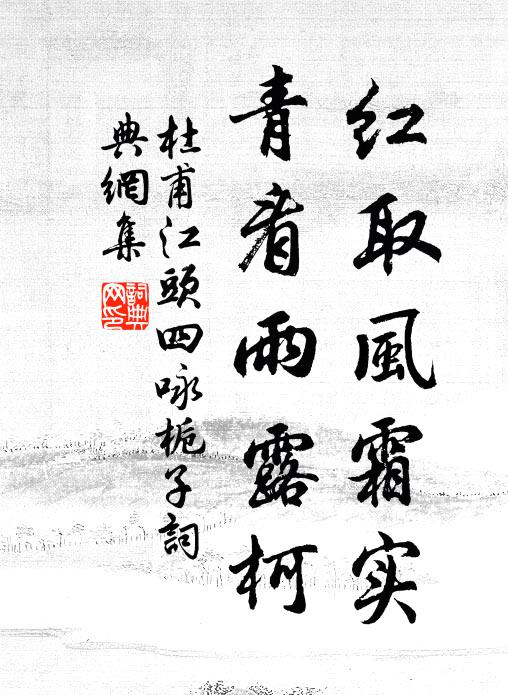 红取風霜实
青看雨露柯
杜甫江頭四咏栀子詞
典網集
詞典
网印